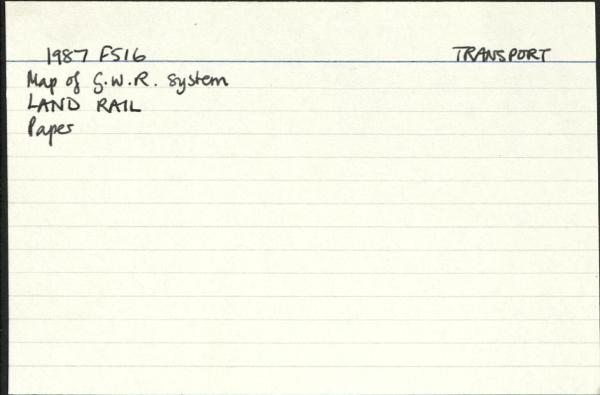 1987 F516 TRANSPORT
Map of G.W.R. System
LAND RAIL
Paper